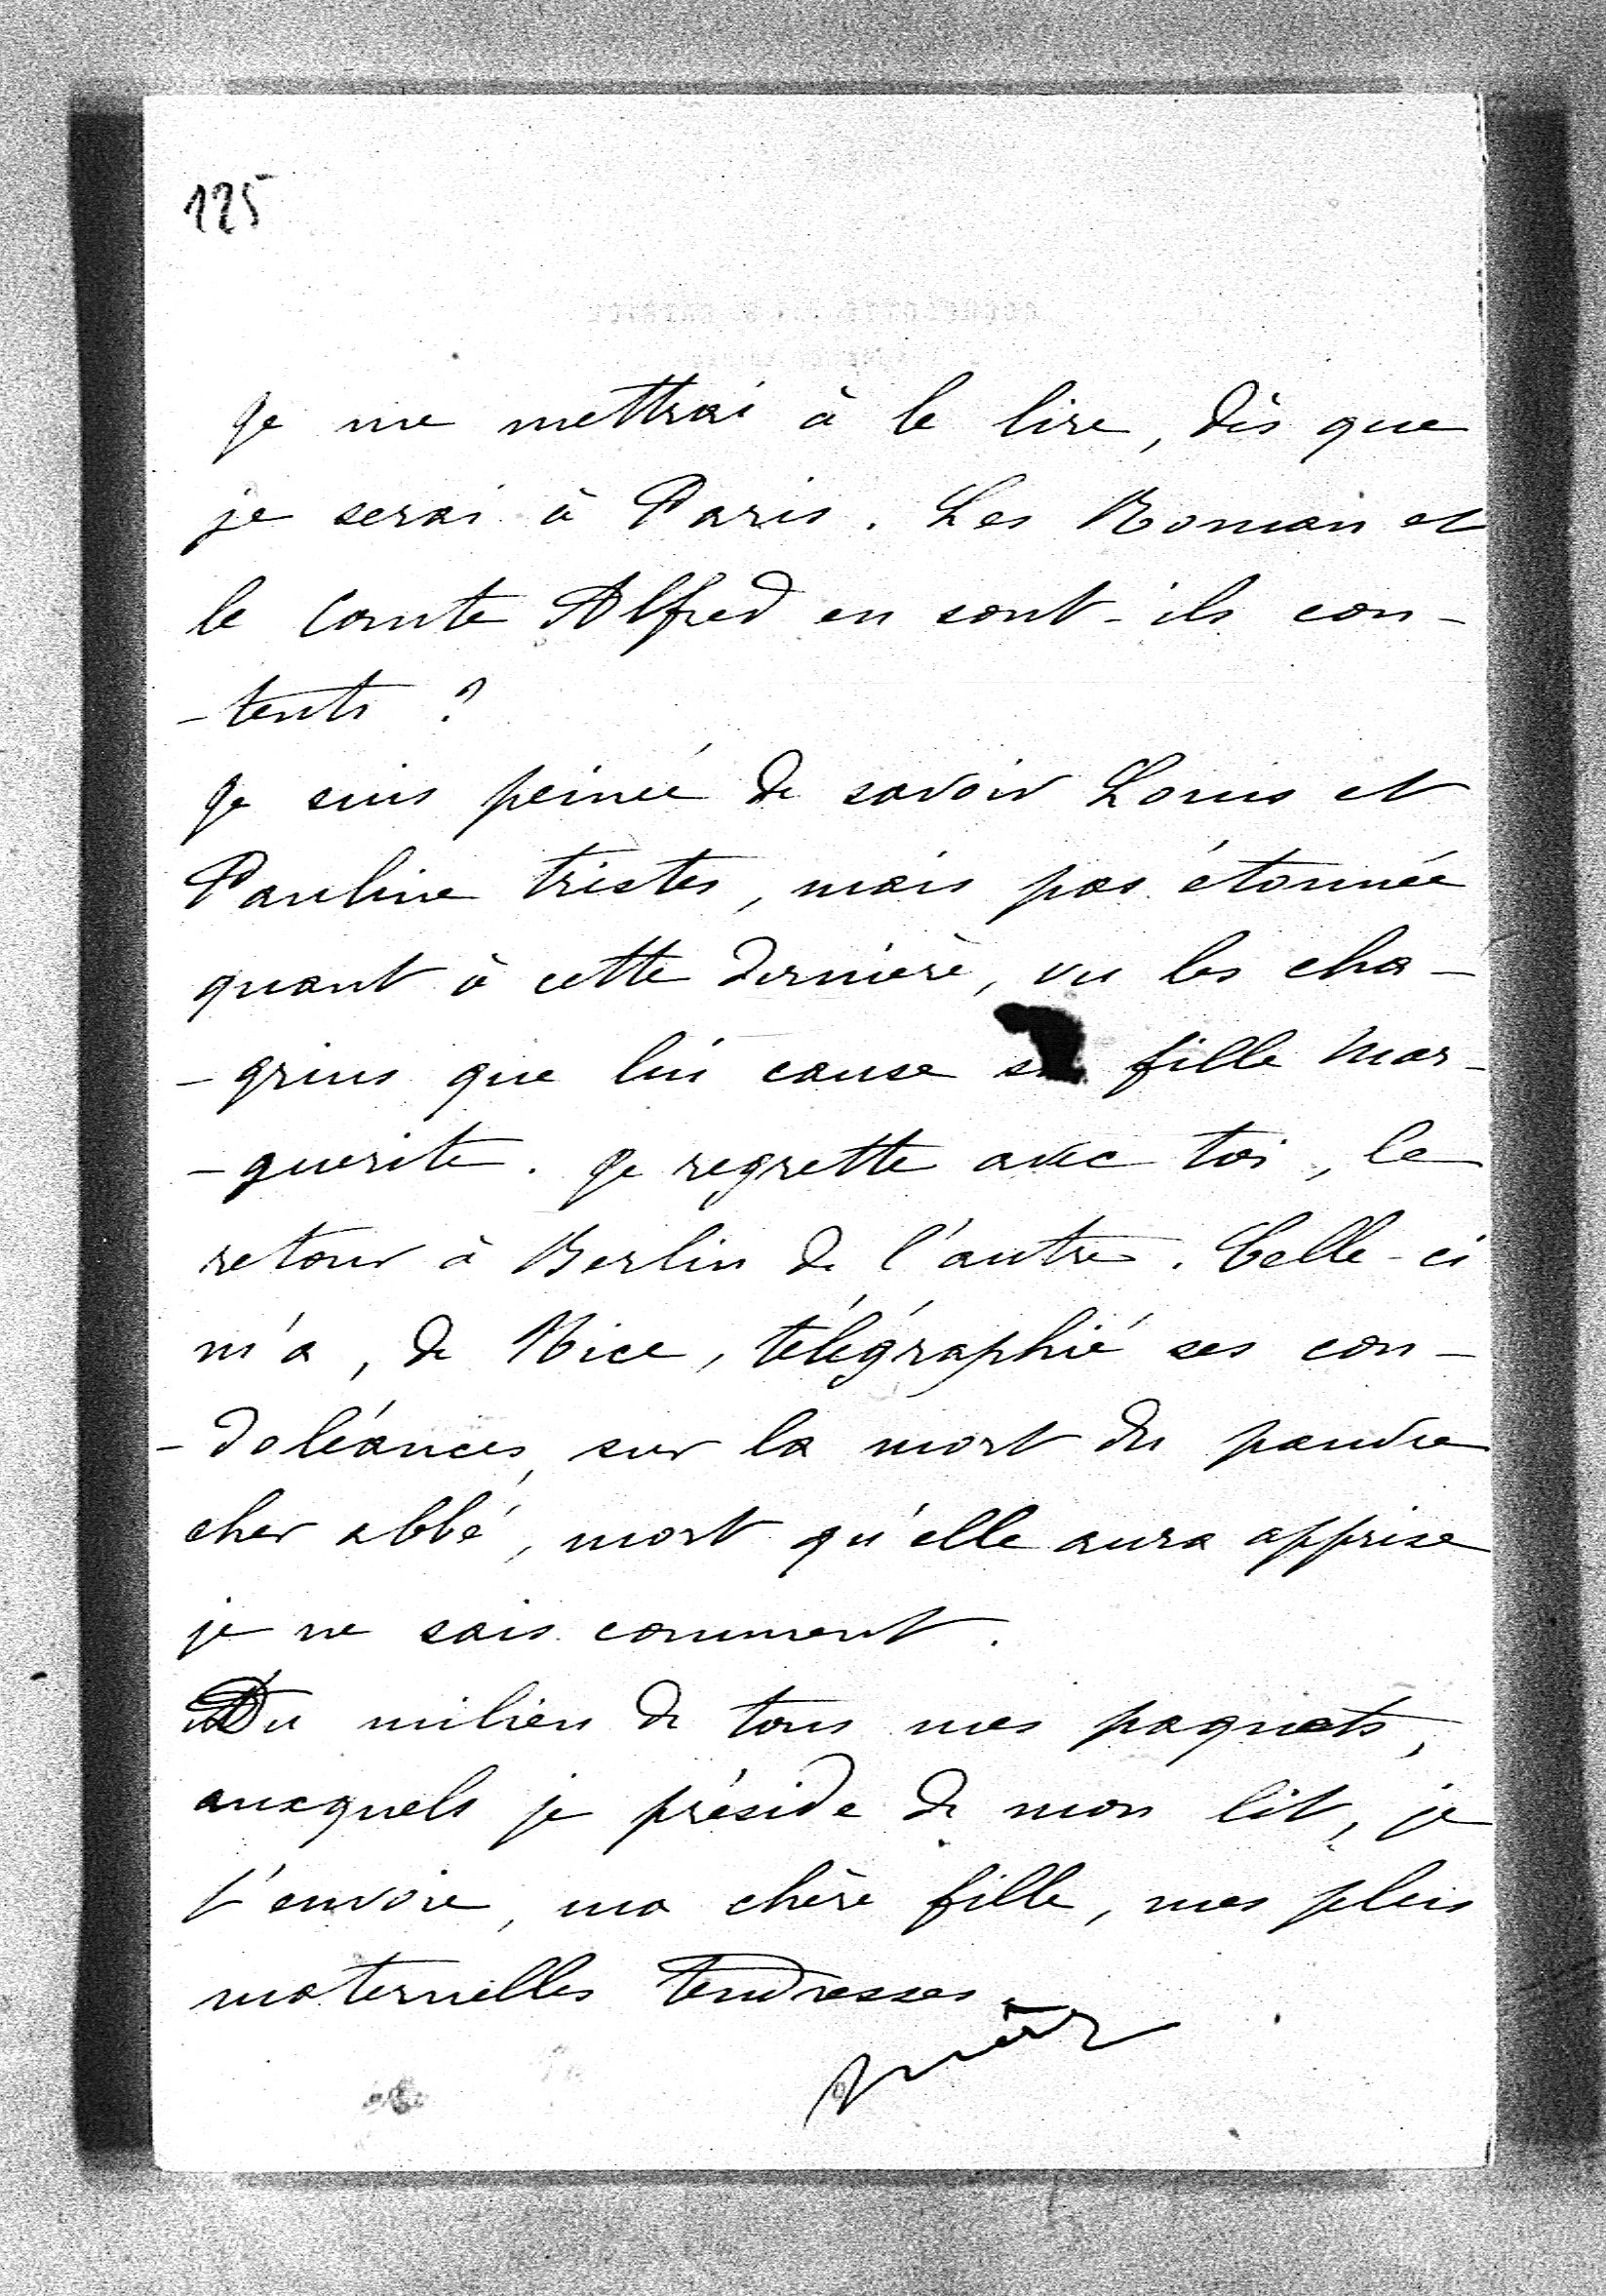 125
Je me mettrai à le lire, dès que
je serai à Paris. Les Roman et
le Comte Alfred en sont-ils con-
-tents ?
Je suis peinée de savoir Louis et
Pauline tristes, mais pas étonnée
quant à cette dernière, vu les cha-
-grins que lui cause sa fille Mar-
-guerite. Je regrette avec toi, le
retour à Berlin de l'autre. Celle-ci
m'a, de Nice, télégraphié ses con-
-doléances, sur la mort du pauvre
cher abbé, mort qu'elle aura apprise
je ne sais comment.
Du milieu de tous mes paquets,
auxquels je préside de mon lit, je
t'envoie, ma chère fille, mes plus
maternelles tendresses.